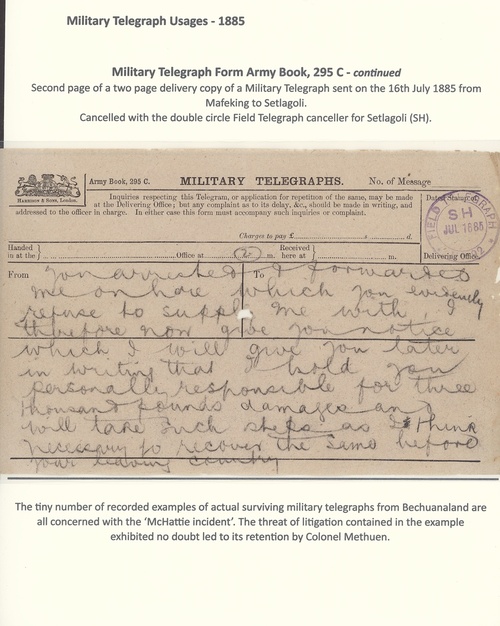 Military Telegraph Usages - 1885
Military Telegraph Form Army Book, 295 C - continued
Second page of a two page delivery copy of a Military Telegraph sent on the 16th July 1885 from
Mafeking to Setlagoli.
Cancelled with the double circle Field Telegraph canceller for Setlagoli (SH).
Harrison & Sons, London.
Army Book, 295 C.
MILITARY TELEGRAPHS.
No. of Message
Inquiries respecting this Telegram, or application for repetition of the same, may be made
at the Delivering Office; but any complaint as to its delay, &c., should be made in writing, and
addressed to the officer in charge. In either case this form must accompany such inquiries or complaint.
Charges to pay £ s. d.
Delivering Office.
FIELD TELEGRAPH
SH
JUL 16 85
Handed in at the
Office at
m.
Received here at
m.
From
To
you arrested I forwarded
me on hore which you evidently
refuse to supply me with, I
therefore now give you notice
which I will give you later
in writing that I hold you
personally responsible for three
thousand pounds damages and
will take such steps as I think
necessary to recover the same before
your leaving country
The tiny number of recorded examples of actual surviving military telegraphs from Bechuanaland are
all concerned with the 'McHattie incident'. The threat of litigation contained in the example
exhibited no doubt led to its retention by Colonel Methuen.